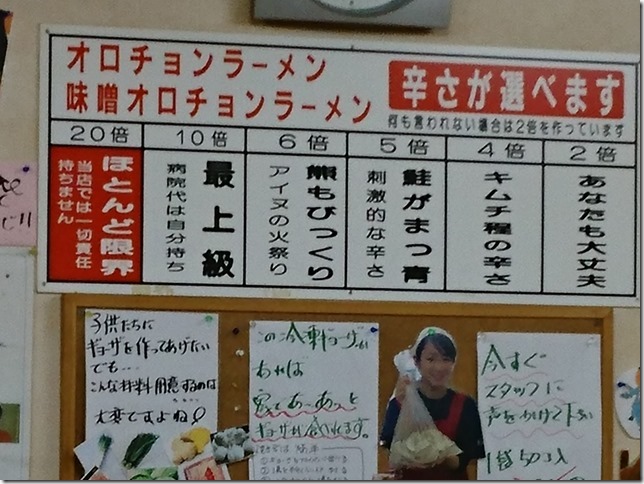 オロチョンラーメン
味噌オロチョンラーメン
辛さが選べます
何も言われない場合は2倍を作っています
20倍
10倍
6倍
5倍
4倍
2倍
ほとんど限界
当店では一切責任
持ちません
最上級
病院代は自分持ち
熊もびっくり
アイヌの火祭り
鮭がまっ青
刺激的な辛さ
キムチ程の辛さ
あなたも大丈夫
子供たちに
ギョーザを作ってあげたい
でも…
こんな材料用意するのは
大変ですよね
この冷凍ギョーザが
あれば
ギョーザが
今すぐ
スタッフに
声をかけて下さい
1袋50コ入